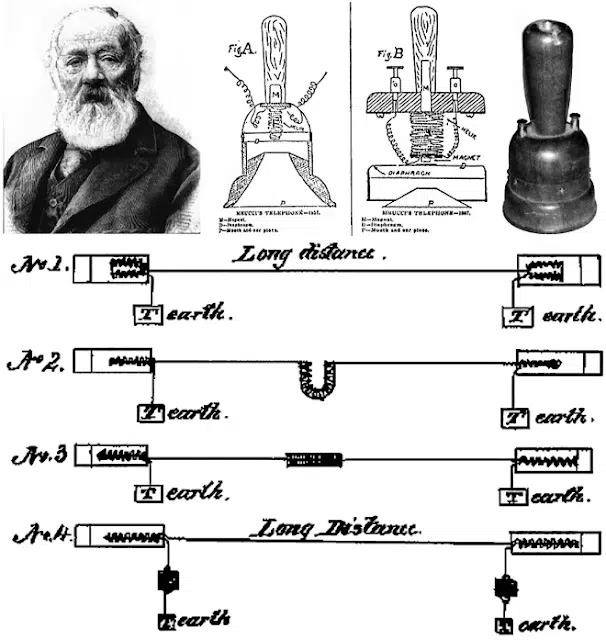 Fig. A.
M
HELIX
D
P
MEUCCI'S TELEPHONE—1857.
M—Magnet.
D—Diaphragm.
P—Mouth and ear piece.
Fig. B
M
HELIX
MAGNET
D
DIAPHRAGM
P
MEUCCI'S TELEPHONE—1867.
M—Magnet.
D—Diaphragm.
P—Mouth and ear piece.
No. 1. Long distance.
T earth. T earth.
No 2.
T earth. T earth.
No. 3
T earth. T earth.
No. 4. Long Distance.
T earth T earth.